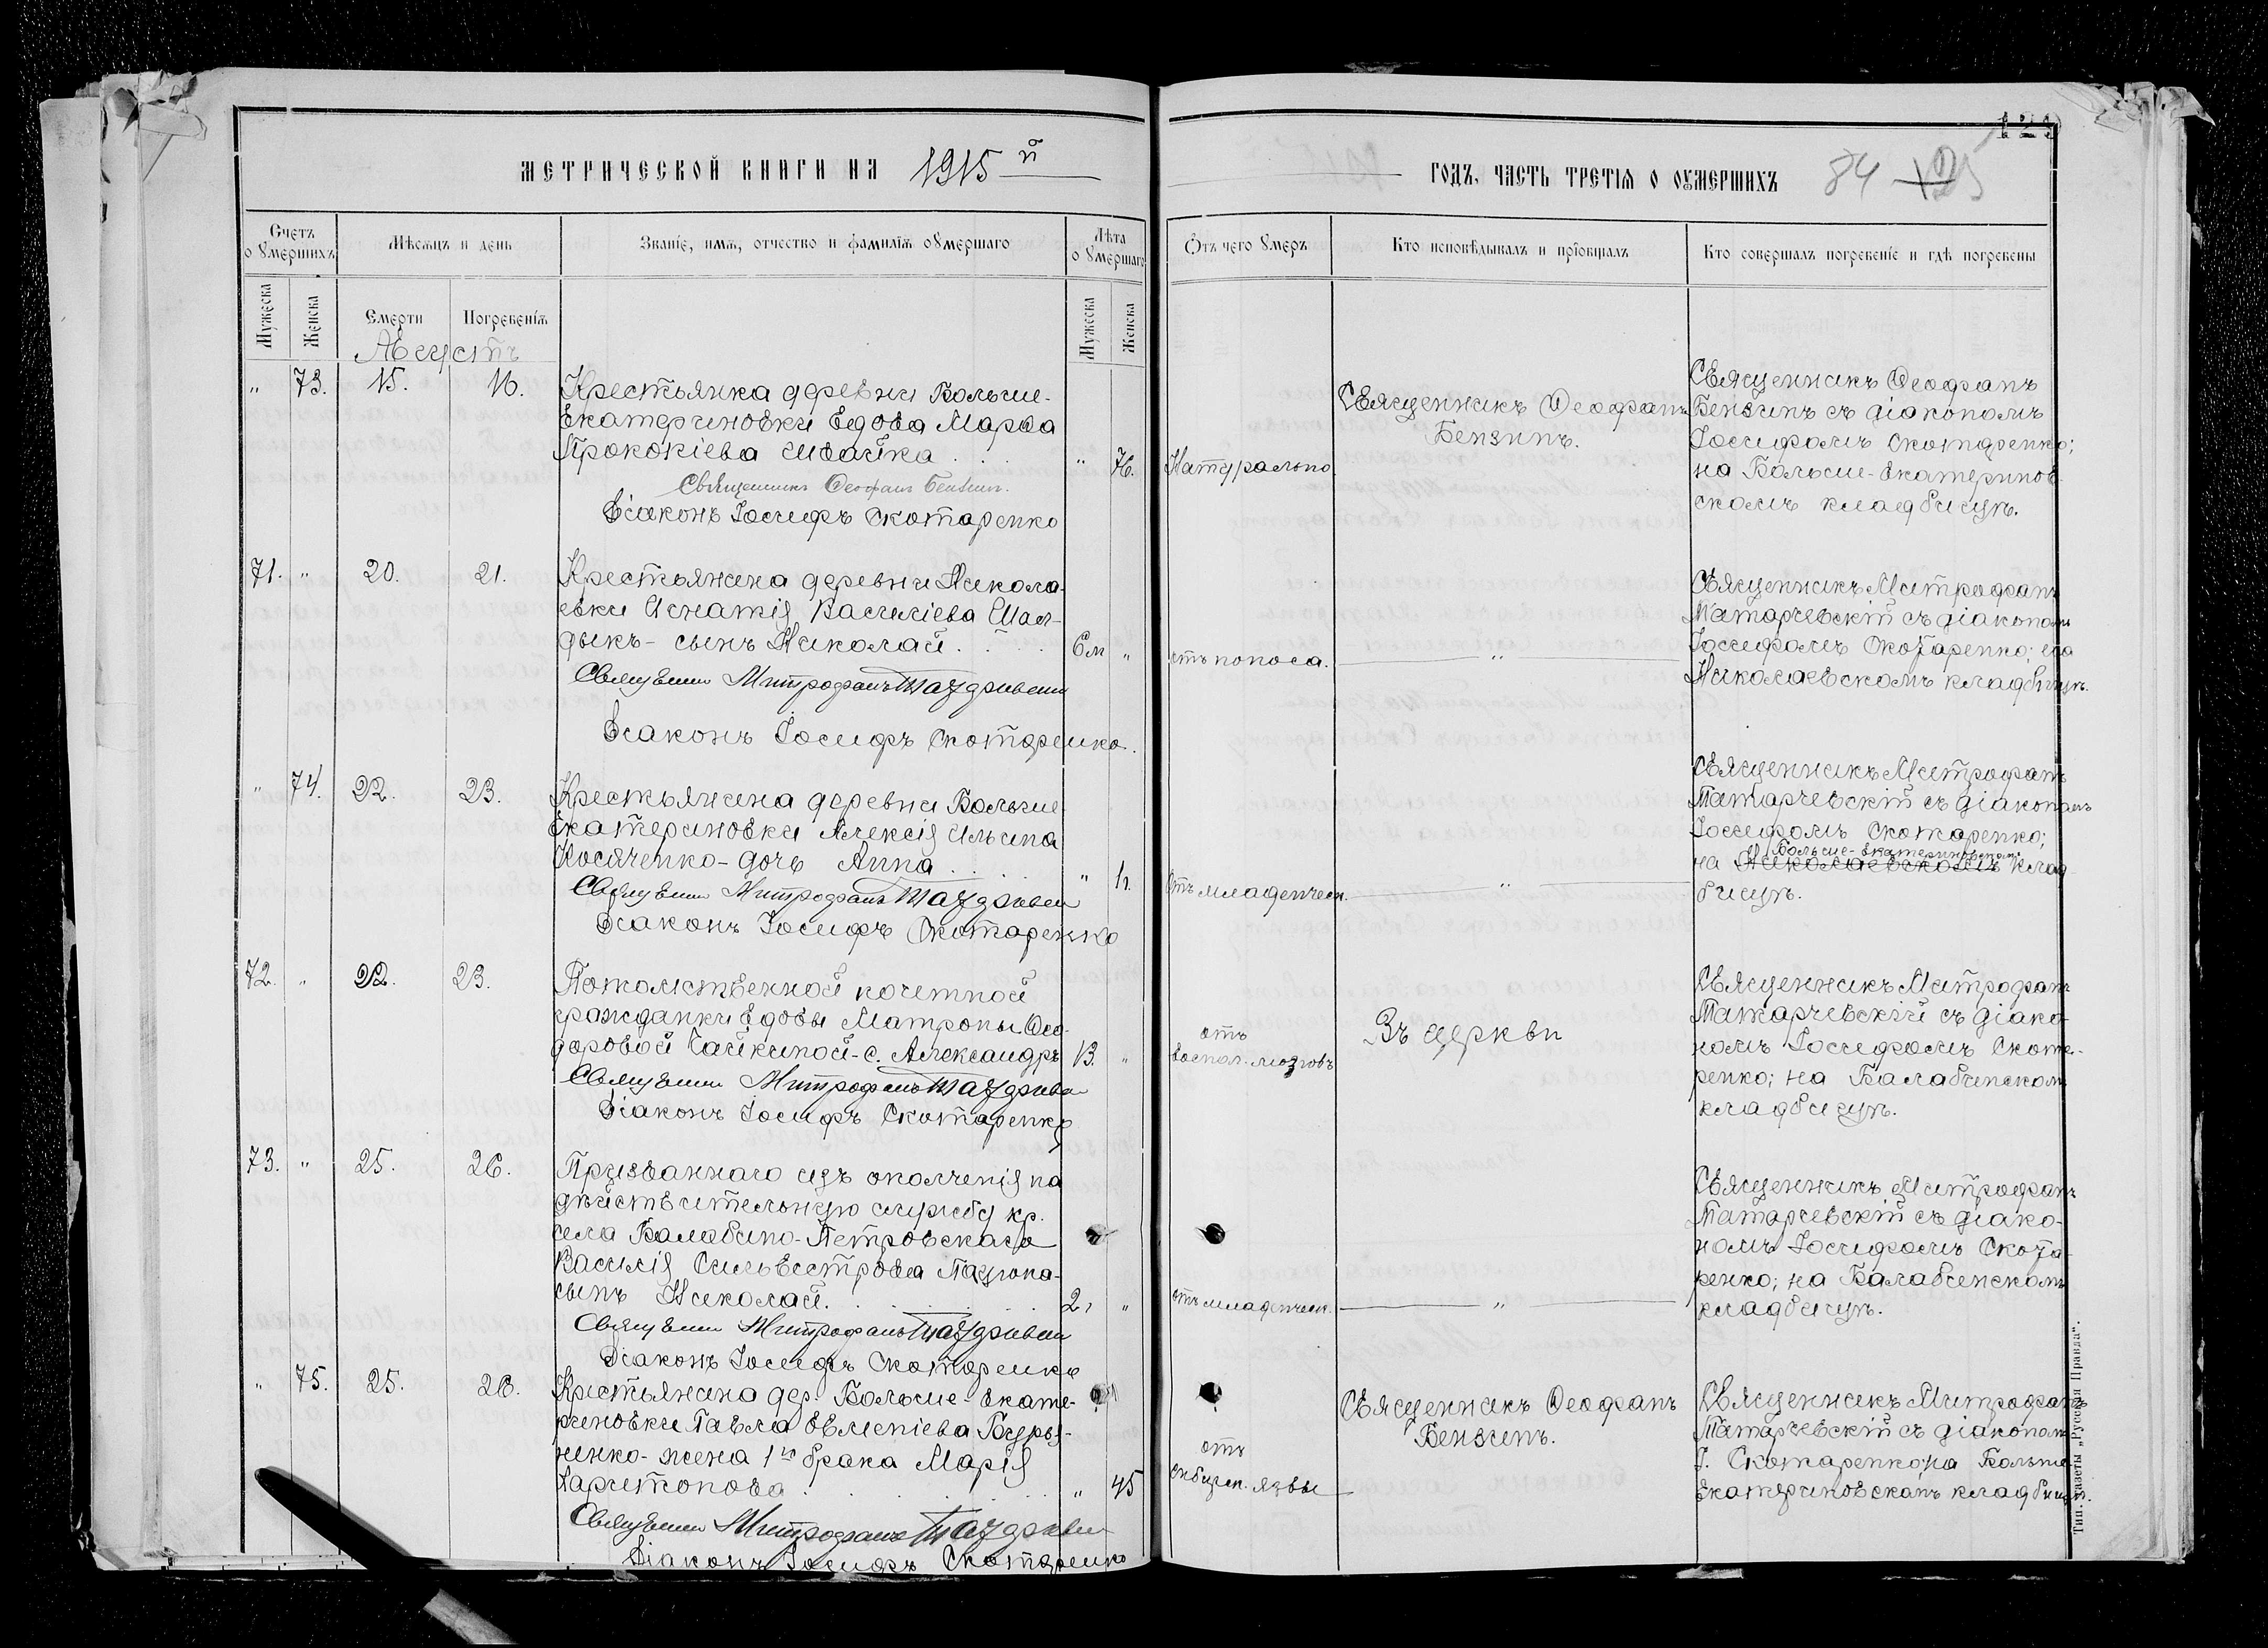 МЕТРИЧЕСКОЙ КНИГИ НА 1915й
Счетъ оумершихъ
Мѣсяцъ и день
Званіе, имя, отчество и фамилія оумершаго
Лѣта оумершаго
Мужеска
Женска
Смерти
Погребенія
Мужеска
Женска
Августъ
" 73. 15. 16. Крестьянка деревни Больше-
Екатериновки вдова Марѳа
Прокопіева Швайка . . . " 76.
Священникъ Ѳеофанъ Бензинъ.
Діаконъ Іосифъ Скотаренко
71. " 20. 21. Крестьянина деревни Никола-
евки Игнатія Василіева Шал-
дыкъ - сынъ Николай . . . . 6м "
Священникъ Митрофанъ
Діаконъ Іосифъ Скотаренко.
" 74. 22. 23. Крестьянина деревни Больше-
Екатериновки Алексія Ильина
Косяченко - дочь Анна . . . "
Священникъ Митрофанъ
Діаконъ Іосифъ Скотаренко
72. " 22. 23. Потомственной почетной
гражданки вдовы Матроны Ѳео-
доровой Чайкиной - с. Александръ 13. "
Священникъ Митрофанъ
Діаконъ Іосифъ Скотаренко
73. " 25. 26. Призваннаго изъ ополченія на
дѣйствительную службу кр.
села Балабино-Петровскаго
Василія Сильвестрова
сынъ Николай. . . . . . "
Священникъ Митрофанъ
Діаконъ Іосифъ Скотаренко
" 75. 25. 26. Крестьянина дер. Больше-Екате-
риновки Павла Евменіева Буры-
ненко - жена 1го брака Марія
Харитонова . . . . . . " 45
Священникъ Митрофанъ
Діаконъ Іосифъ Скотаренко
ГОДЪ, ЧАСТЬ ТРЕТІЯ О ОУМЕРШИХЪ 84
Отъ чего оумеръ
Кто исповѣдывалъ и пріобщалъ
Кто совершалъ погребеніе и гдѣ погребены
Натурально
Священникъ Ѳеофанъ
Бензинъ.
Священникъ Ѳеофанъ
Бензинъ съ діакономъ
Іосифомъ Скотаренко;
на Больше-Екатеринов-
скомъ кладбищѣ.
отъ поноса. "
Священникъ Митрофанъ
Татарчевскій съ діакономъ
Іосифомъ Скотаренко; на
Николаевскомъ кладбищѣ.
Отъ младенческ. "
Священникъ Митрофанъ
Татарчевскій съ діакономъ
Іосифомъ Скотаренко;
Больше-Екатериновскомъ
на Николаевскомъ клад-
бищѣ.
отъ
воспал. мозговъ
Въ церкви
Священникъ Митрофанъ
Татарчевскій съ діако-
номъ Іосифомъ Скота-
ренко; на Балабинскомъ
кладбищѣ.
отъ младенческ. "
Священникъ Митрофанъ
Татарчевскій съ діако-
номъ Іосифомъ Скота-
ренко; на Балабинскомъ
кладбищѣ.
отъ
сибирск. язвы
Священникъ Ѳеофанъ
Бензинъ.
Священникъ Митрофанъ
Татарчевскій съ діакономъ
І. Скотаренко на Больше-
Екатериновскомъ кладбищѣ.
Тип. газеты „Русская Правда“.